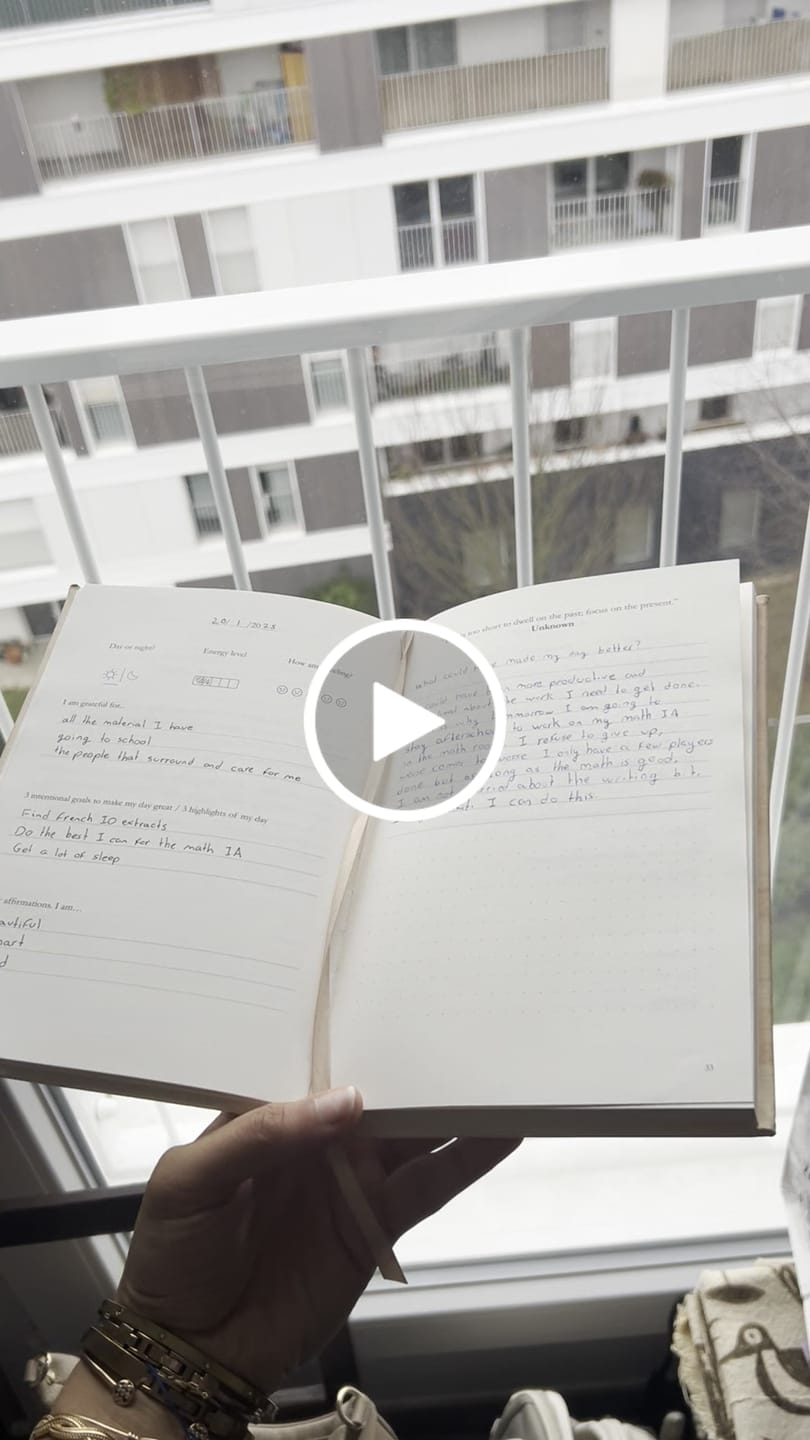 20/1/2025
Day or night?
Energy level
How am
I am grateful for...
all the material I have
going to school
the people that surround and care for me
3 intentional goals to make my day great / 3 highlights of my day
Find French IO extracts
Do the best I can for the math IA
Get a lot of sleep
affirmations. I am...
too short to dwell on the past; focus on the present."
Unknown
what could made my day better?
could have more productive and
about the work I need to get done.
why tomorrow I am going to
stay afterschool to work on my math IA
in the math I refuse to give up,
I only have a few players
done but as long as the math is good,
I am about the writing
I can do this.
33